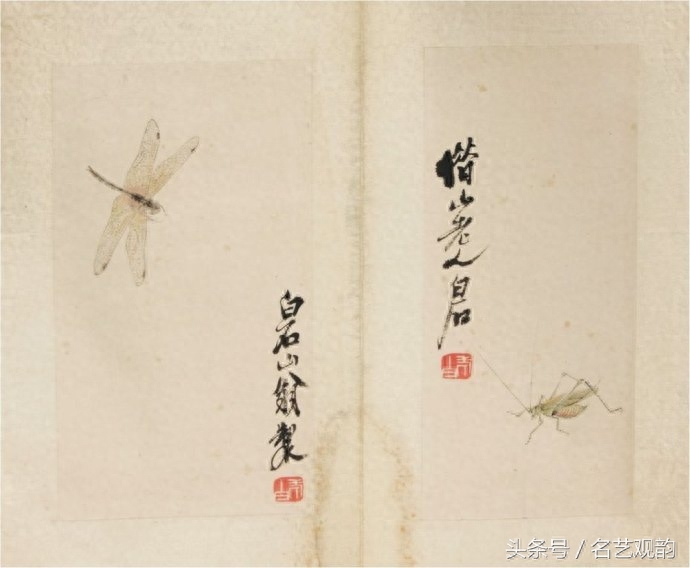 借山老人白石
白石山翁製
头条号 / 名艺观韵